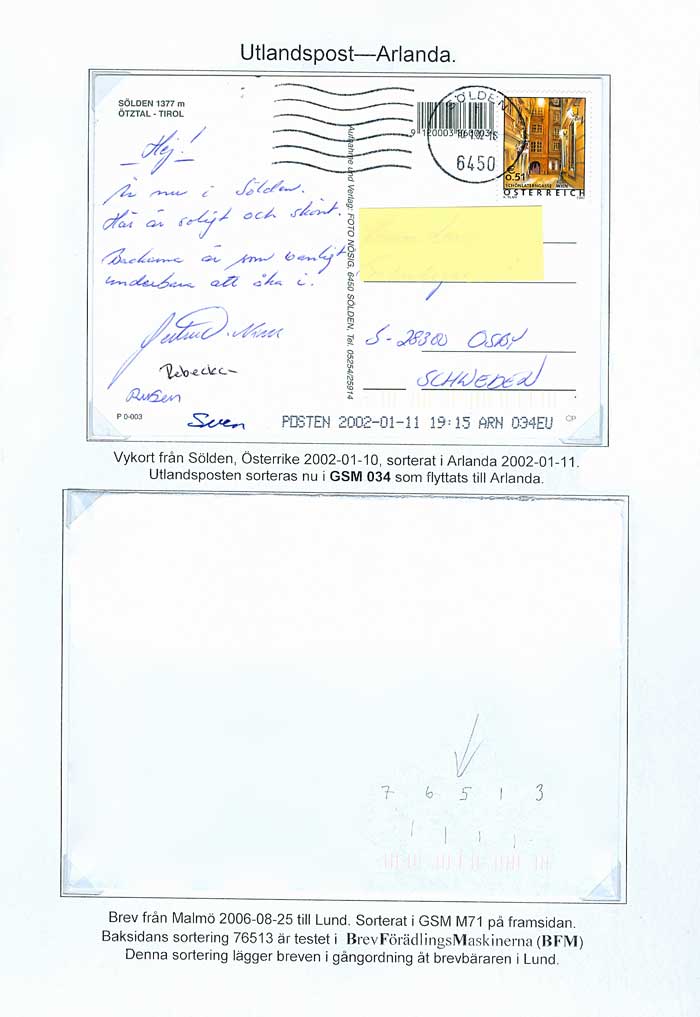 Utlandspost—Arlanda.
SÖLDEN 1377 m
ÖTZTAL - TIROL
Hej!
Är nu i Sölden.
Här är soligt och skönt.
Backarna är som vanligt
underbara att åka i.
Rebecka
Ruben
Sven
P 0-003
Aufnahme und Verlag: FOTO NÖSIG, 6450 SÖLDEN, Tel. 05254/25914
SÖLDEN
6450
€ 0.51
SCHÖNLATERNGASSE, WIEN
ÖSTERREICH
S-28300 OSBY
SCHWEDEN
POSTEN 2002-01-11 19:15 ARN 034EU
CP
Vykort från Sölden, Österrike 2002-01-10, sorterat i Arlanda 2002-01-11.
Utlandsposten sorteras nu i GSM 034 som flyttats till Arlanda.
7 6 5 1 3
Brev från Malmö 2006-08-25 till Lund. Sorterat i GSM M71 på framsidan.
Baksidans sortering 76513 är testet i BrevFörädlingsMaskinerna (BFM)
Denna sortering lägger breven i gångordning åt brevbäraren i Lund.